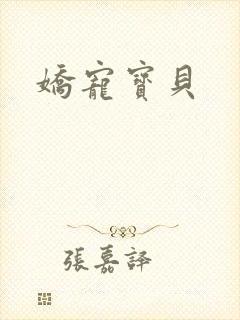 嬌寵寶貝
張嘉譯